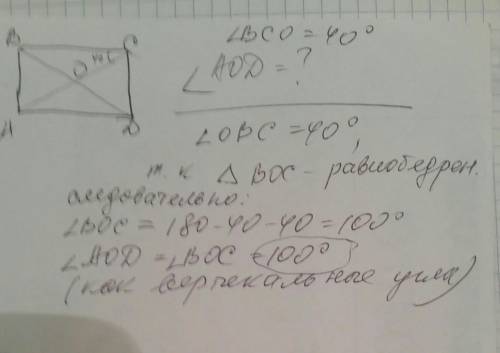 B C
O 40°
A D
∠BCO = 40°
∠AOD = ?
∠OBC = 40°,
т. к △ BOC - равнобедрен.
следовательно:
∠BOC = 180 - 40 - 40 = 100°
∠AOD = ∠BOC = 100°
(как вертекальные угла)